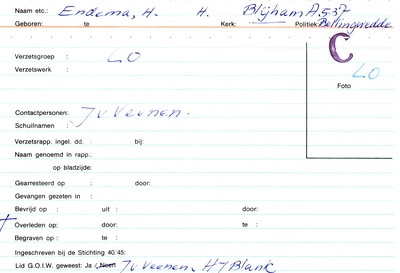 Naam etc.: Endema, H. H. Blijham A.537
Geboren: te Kerk: Politiek: Bellingwedde
C
Verzetsgroep : LO
LO
Verzetswerk :
Foto
Contactpersonen: J v Veenen.
Schuilnamen :
Verzetsrapp. ingel. dd. : bij:
Naam genoemd in rapp.:
op bladzijde:
Gearresteerd op : door:
Gevangen gezeten in :
Bevrijd op : uit : door:
Overleden op: door: te :
Begraven op : te :
Ingeschreven bij de Stichting 40.45:
Lid G.O.I.W. geweest: Ja / Neen J v Veenen, H J Blank